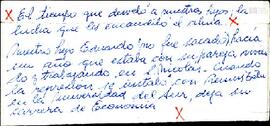 El tiempo que develó a nuestros hijos, la
lucha que les encendió el alma.
Nuestro hijo Eduardo (no fue sacado) hacía
un año que estaba con su pareja, vivía
lo y trabajando en S. Nicolás. Cuando
la represión, se instaló con
en la Universidad del Sur, deja su
carrera de Economía